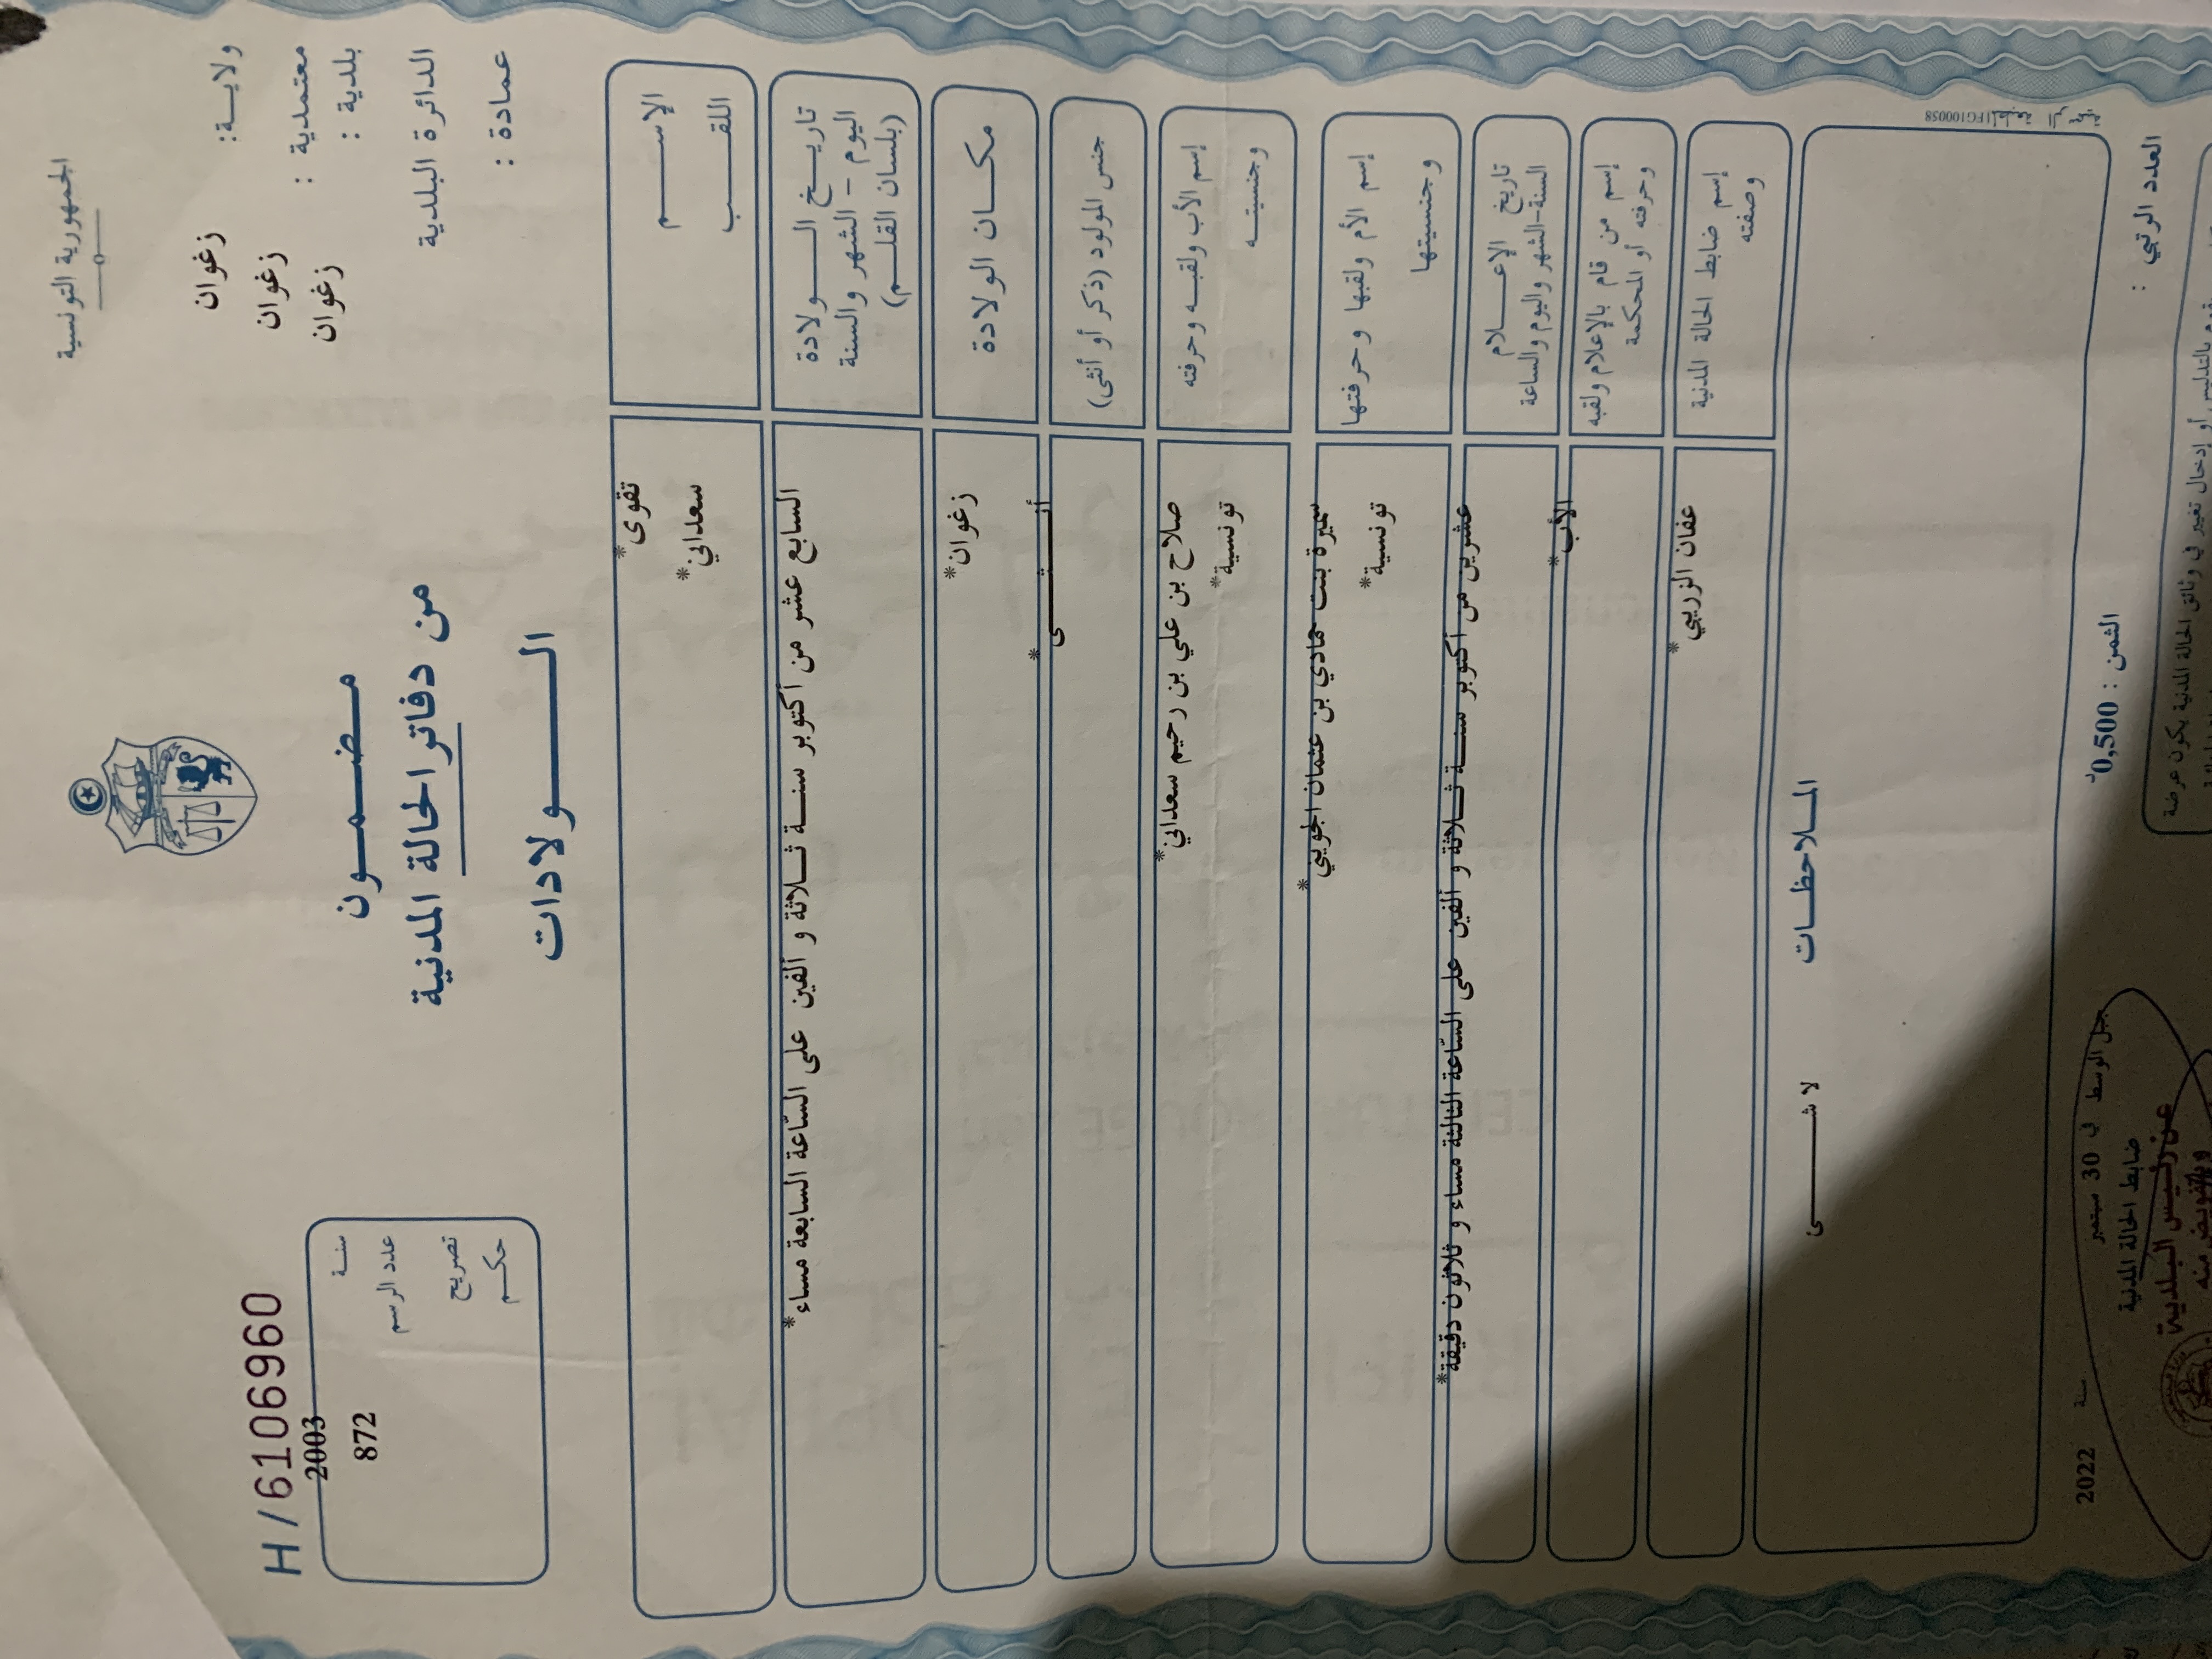 الجمهورية التونسية
ولايـــة: زغوان
معتمدية : زغوان
بلدية : زغوان
الدائرة البلدية
عمادة :
مـضـمــون
من دفاتر الحالة المدنية
الــــولادات
H/6106960
سنـة 2003
عدد الرسم 872
تصريح
حكـم
الإســـــم
تقوى*
اللقـــــب
سعداني*
تاريــخ الــــولادة
اليوم – الشهر والسنة
(بلسان القلـــم)
السابع عشر من أكتوبر سنـــة ثـــلاثة و ألفين على السّاعة السابعة مساء*
مكـــان الولادة
زغوان*
جنس المولود (ذكر أو أنثى)
أنـــــثـــــى*
إسم الأب ولقبـه وحرفته
وجنسيتـــه
صلاح بن علي بن رحيم سعداني*
تونسية*
إسم الأم ولقبها وحرفتها
وجنسيتها
سميرة بنت حمادي بن عثمان الجويني*
تونسية*
تاريخ الإعــــلام
السنة-الشهر واليوم والساعة
عشرين من أكتوبر سنـــة ثـــلاثة و ألفين على السّاعة الثالثة مساء و ثلاثون دقيقة*
إسم من قام بالإعلام ولقبه
وحرفته أو المحكمة
الأب*
إسم ضابط الحالة المدنية
وصفته
عفان الزريبي*
المـلاحظـات
لا شـــــــى
المطبعة الرسمية FG100058
العدد الرتبي :
الثمن : 0,500د
جبل الوسط في 30 سبتمبر سنة 2022
ضابط الحالة المدنية
عن رئيس البلدية
وبتفويض منه
بالتدليس أو إدخال تغيير في وثائق الحالة المدنية يكون عرضة